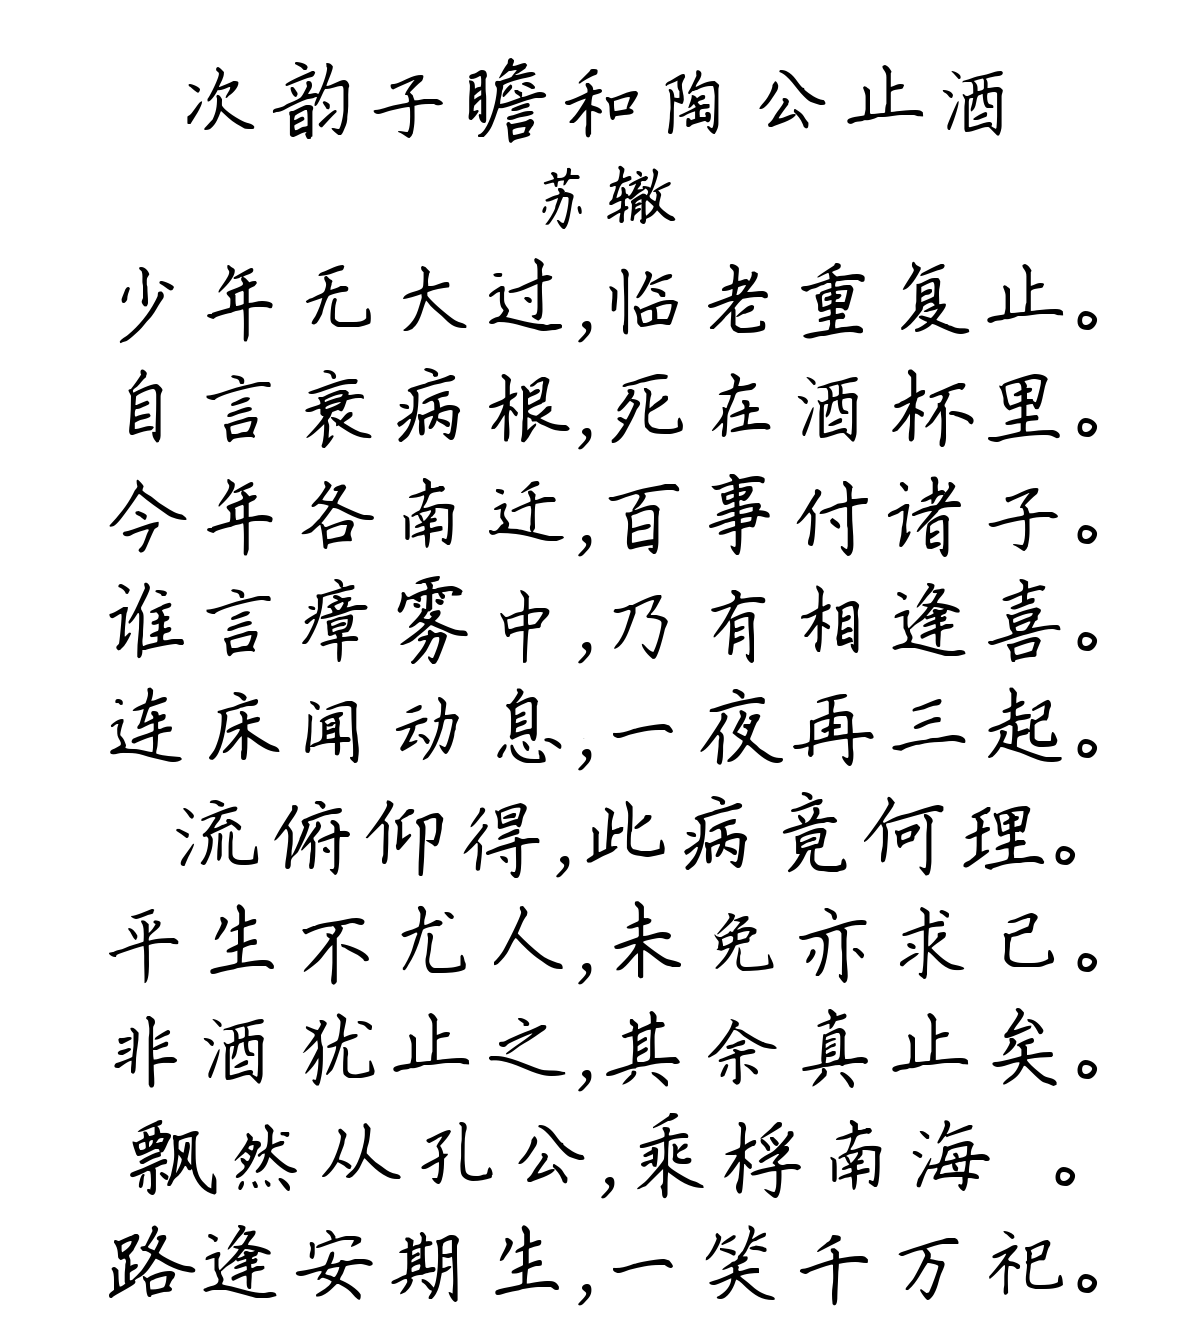 次韵子瞻和陶公止酒
苏辙
少年无大过,临老重复止。
自言衰病根,死在酒杯里。
今年各南迁,百事付诸子。
谁言瘴雾中,乃有相逢喜。
连床闻动息,一夜再三起。
流俯仰得,此病竟何理。
平生不尤人,未免亦求己。
非酒犹止之,其余真止矣。
飘然从孔公,乘桴南海 。
路逢安期生,一笑千万祀。